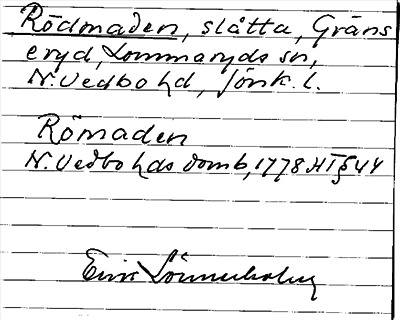 Rödmaden, slåtta, Gräns
eryd, Lommaryds sn,
N. Vedbo hd, Jönk. l.
Römaden
N. Vedbo hds domb, 1778 HT § 44